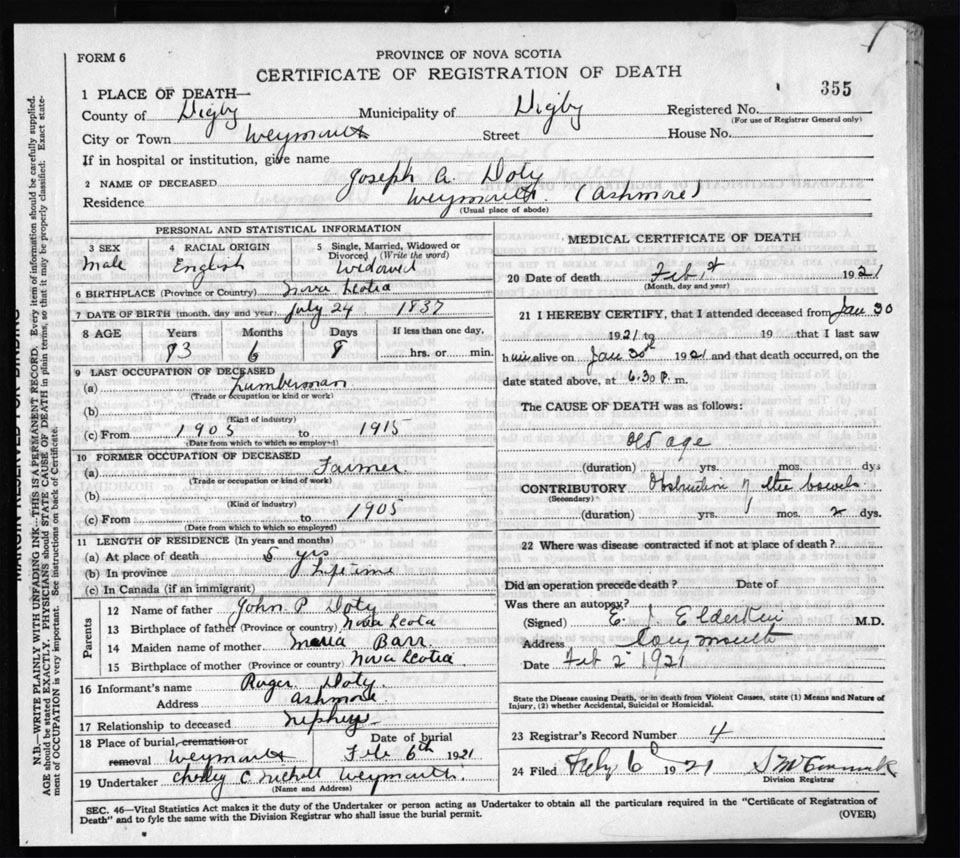 FORM 6
PROVINCE OF NOVA SCOTIA
CERTIFICATE OF REGISTRATION OF DEATH
355
1 PLACE OF DEATH—
County of Digby Municipality of Digby Registered No.
(For use of Registrar General only)
City or Town Weymouth Street House No.
If in hospital or institution, give name
2 NAME OF DECEASED Joseph A. Doty
Residence Weymouth. (Ashmore)
(Usual place of abode)
PERSONAL AND STATISTICAL INFORMATION
3 SEX 4 RACIAL ORIGIN 5 Single, Married, Widowed or Divorced (Write the word)
Male English Widowed
6 BIRTHPLACE (Province or Country) Nova Scotia
7 DATE OF BIRTH (month, day and year) July 24 1837
8 AGE Years Months Days If less than one day,
83 6 8 hrs. or min.
9 LAST OCCUPATION OF DECEASED
(a) Lumberman
(Trade or occupation or kind or work)
(b)
(Kind of industry)
(c) From 1905 to 1915
(Date from which to which so employed)
10 FORMER OCCUPATION OF DECEASED
(a) Farmer
(Trade or occupation or kind of work)
(b)
(Kind of industry)
(c) From to 1905
(Date from which to which so employed)
11 LENGTH OF RESIDENCE (In years and months)
(a) At place of death 5 yrs
(b) In province Lifetime
(c) In Canada (if an immigrant)
Parents
12 Name of father John P Doty
13 Birthplace of father (Province or country) Nova Scotia
14 Maiden name of mother Maria Barr
15 Birthplace of mother (Province or country) Nova Scotia
16 Informant's name Roger Doty
Address Ashmore
17 Relationship to deceased nephew
18 Place of burial, cremation or removal Date of burial
Weymouth Feb 6th 1921
19 Undertaker C Nichols Weymouth.
(Name and Address)
MEDICAL CERTIFICATE OF DEATH
20 Date of death Feb 1st 1921
(Month, day and year)
21 I HEREBY CERTIFY, that I attended deceased from Jan 30
1921 to 19 that I last saw
him alive on Jan 30th 1921 and that death occurred, on the
date stated above, at 6.30 P. m.
The CAUSE OF DEATH was as follows:
Old age
(duration) yrs. mos. dys
CONTRIBUTORY Obstruction of the bowels
(Secondary)
(duration) yrs. mos. 2 dys.
22 Where was disease contracted if not at place of death?
Did an operation precede death? Date of
Was there an autopsy?
(Signed) E. J. Elderkin M.D.
Address Weymouth
Date Feb 2 1921
State the Disease causing Death, or in death from Violent Causes, state (1) Means and Nature of Injury, (2) whether Accidental, Suicidal or Homicidal.
23 Registrar's Record Number 4
24 Filed Feby 6 1921
Division Registrar
SEC. 46—Vital Statistics Act makes it the duty of the Undertaker or person acting as Undertaker to obtain all the particulars required in the "Certificate of Registration of
Death" and to fyle the same with the Division Registrar who shall issue the burial permit.
(OVER)
MARGIN RESERVED FOR BINDING
N.B.—WRITE PLAINLY WITH UNFADING INK—THIS IS A PERMANENT RECORD. Every item of information should be carefully supplied.
AGE should be stated EXACTLY. PHYSICIANS should STATE CAUSE OF DEATH in plain terms, so that it may be properly classified. Exact state-
ment of OCCUPATION is very important. See instructions on back of Certificate.